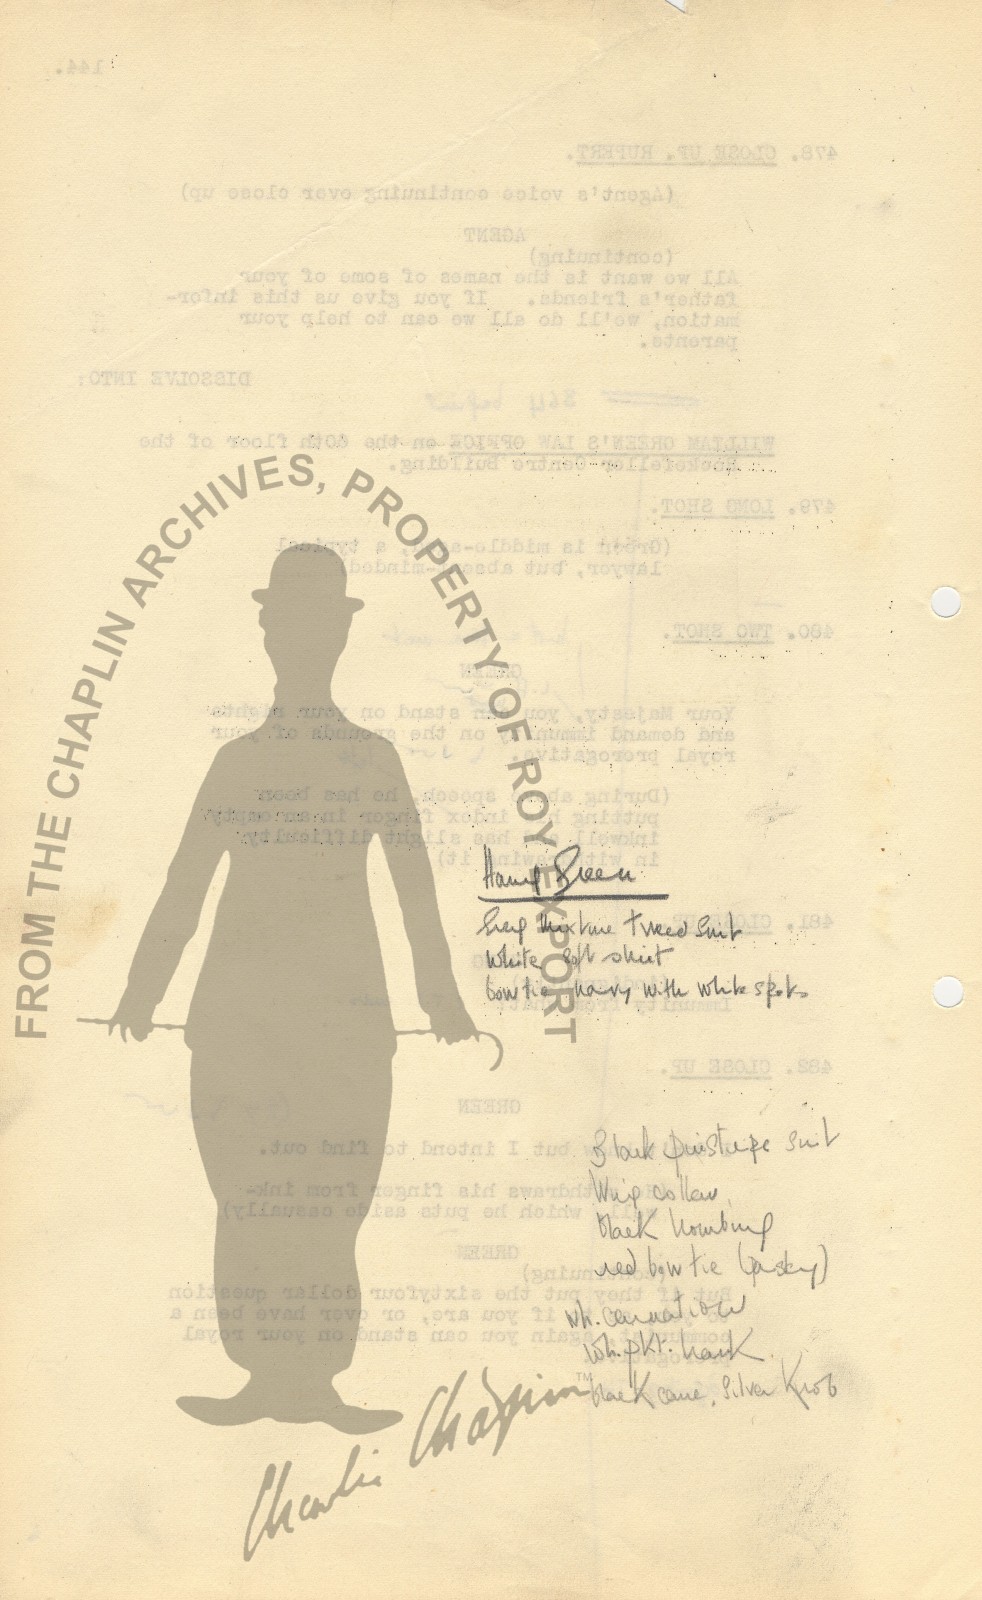 144.
478. CLOSE UP. RUPERT.
(Agent's voice continuing over close up)
AGENT
(continuing)
All we want is the names of some of your
father's friends. If you give us this infor-
mation, we'll do all we can to help your
parents.
DISSOLVE INTO:
WILLIAM GREEN'S LAW OFFICE on the 40th floor of the
Rockefeller Centre Building.
479. LONG SHOT.
(Green is middle-aged, a typical
lawyer, but absent-minded)
480. TWO SHOT.
GREEN
Your Majesty, you can stand on your rights
and demand immunity on the grounds of your
royal prerogative.
(During above speech, he has been
putting his index finger in an empty
inkwell and has slight difficulty
in withdrawing it)
Green
Grey mixture tweed suit
white soft shirt
bowtie navy with white spots
481. CLOSE UP.
Immunity from what
482. CLOSE UP.
GREEN
but I intend to find out.
withdraws his finger from ink-
which he puts aside casually)
GREEN
(continuing)
But if they put the sixtyfour dollar question
if you are, or ever have been a
communist, again you can stand on your royal
prerogative.
Black pinstripe suit
Wing collar,
black homburg
red bow tie (paisley)
wh. carnation
wh. pkt. hank.
black cane, silver knob
FROM THE CHAPLIN ARCHIVES, PROPERTY OF ROY EXPORT
Charlie Chaplin™